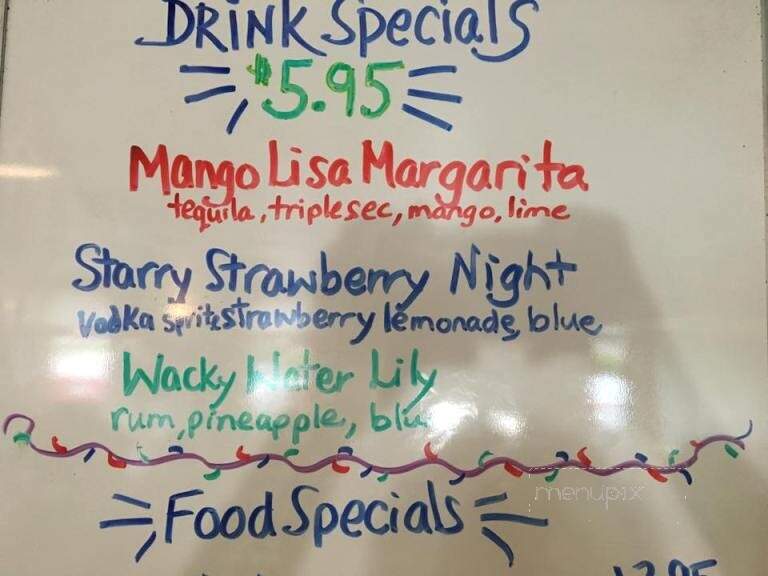 DRINK Specials
$5.95
Mango Lisa Margarita
tequila, triple sec, mango, lime
Starry Strawberry Night
Vodka sprite strawberry lemonade, blue
Wacky Water Lily
rum, pineapple, blu
Food Specials
menupix